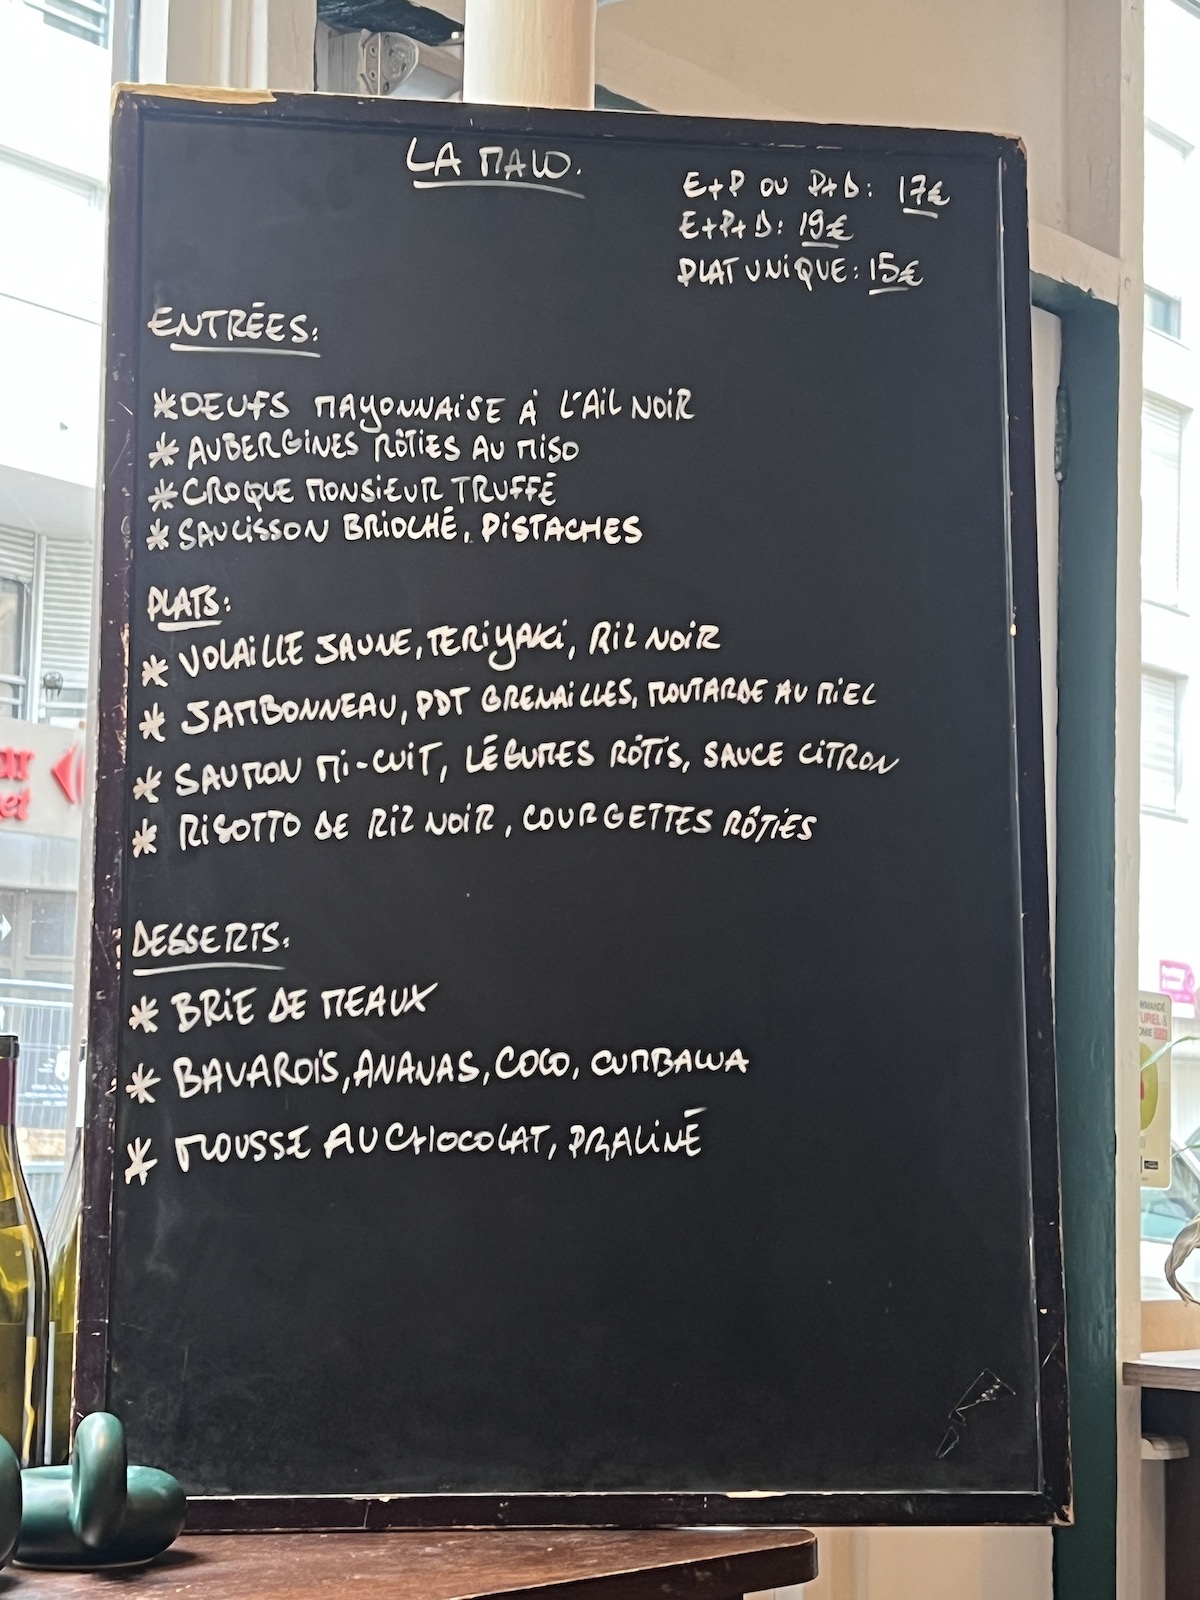 LA MALO.
E+P OU P+D: 17€
E+P+D: 19€
PLAT UNIQUE: 15€
ENTRÉES:
* OEUFS MAYONNAISE À L'AIL NOIR
* AUBERGINES RÔTIES AU MISO
* CROQUE MONSIEUR TRUFFÉ
* SAUCISSON BRIOCHÉ, PISTACHES
PLATS:
* VOLAILLE JAUNE, TERIYAKI, RIZ NOIR
* JAMBONNEAU, PDT GRENAILLES, MOUTARDE AU MIEL
* SAUMON MI-CUIT, LÉGUMES RÔTIS, SAUCE CITRON
* RISOTTO DE RIZ NOIR, COURGETTES RÔTIES
DESSERTS:
* BRIE DE MEAUX
* BAVAROIS, ANANAS, COCO, CUMBAWA
* MOUSSE AU CHOCOLAT, PRALINÉ